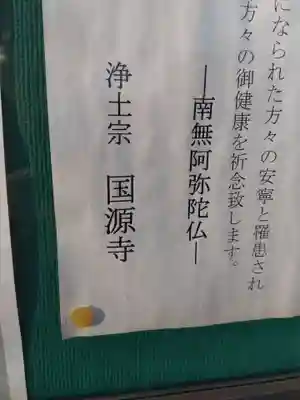 になられた方々の安寧と罹患され
方々の御健康を祈念致します。
―南無阿弥陀仏―
浄土宗 国源寺